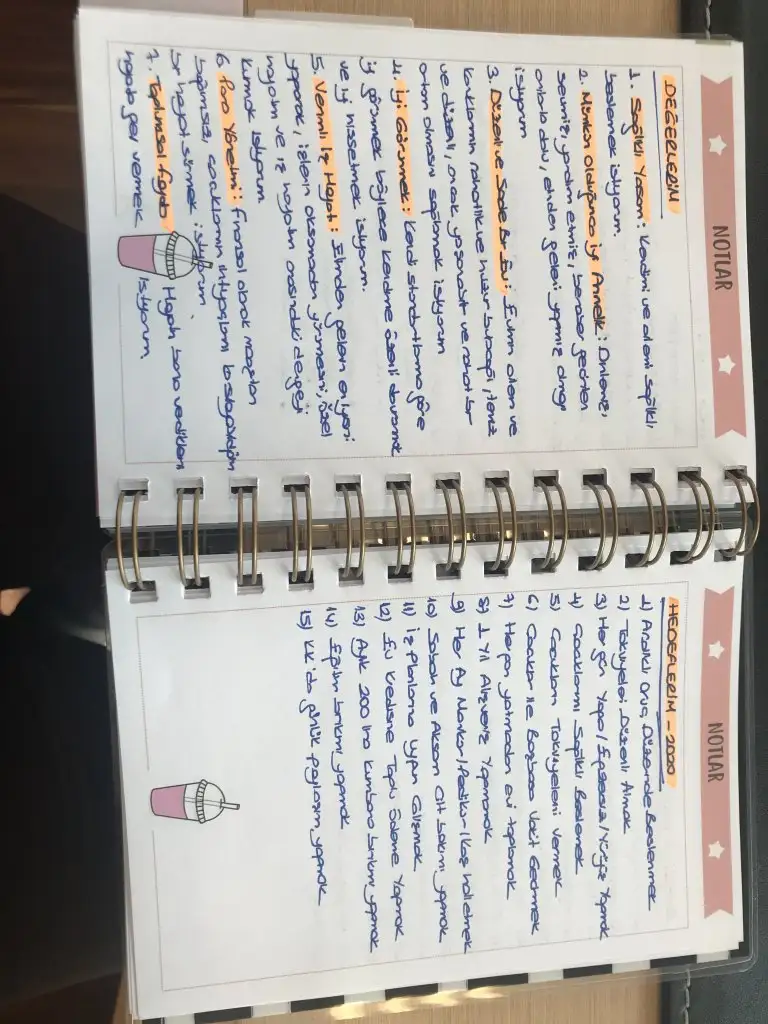 NOTLAR
DEĞERLERİM
1. Sağlıklı Yaşam: Kendimi ve ailemi sağlıklı
beslemek istiyorum.
2. Mümkün Olduğunca iyi Annelik: Dinlemiş,
sevmiş, yardım etmiş, beraber geçirilen
onlarla dolu, elinden geleni yapmış olmayı
istiyorum
3. Düzenli ve Sade Bir Ev: Evimin ailem ve
konukların rahatlık ve huzur bulacağı, temiz
ve düzenli, ancak yaşanabilir ve rahat bir
ortam olmasını sağlamak istiyorum
4. İyi Görünmek: Kendi standartlarıma göre
iyi görünmek böylece kendime özenli davranmak
ve iyi hissetmek istiyorum.
5. Verimli İş Hayatı: Elimden gelenin en iyisini
yaparak, işlerin aksamadan yürümesini, özel
hayatım ve iş hayatım arasındaki dengeyi
kurmak istiyorum
6. Para Yönetimi: finansal olarak
bağımsız, çocuklarımın ihtiyaçlarını karşılayabildiğim
bir hayat sürmek istiyorum
7. Toplumsal fayda: Hayatın bana verdiklerini
hayata geri vermek istiyorum.
NOTLAR
HEDEFLERİM - 2020
1) Aralıklı Oruç Düzeninde Beslenmek
2) Takviyeleri Düzenli Almak
3) Hergün Yoga/Egzersiz/Yürüyüş Yapmak
4) Çocuklarımı Sağlıklı Beslemek
5) Çocukların Takviyelerini Vermek
6) Çocuklar ile Başbaşa Vakit Geçirmek
7) Hergün yatmadan evi toplamak
8) 1 Yıl Alışveriş Yapmamak
9) Her Ay Manikür/Pedikür/Kaş halletmek
10) Sabah ve Akşam Cilt bakımı yapmak
11) İş Planlarına Uygun Çalışmak
12) Ev Kredisine Toplu Ödeme Yapmak
13) Aylık 200 lira kumbara birikimi yapmak
14) Eğitim birikimi yapmak
15) KK'da günlük paylaşım yapmak